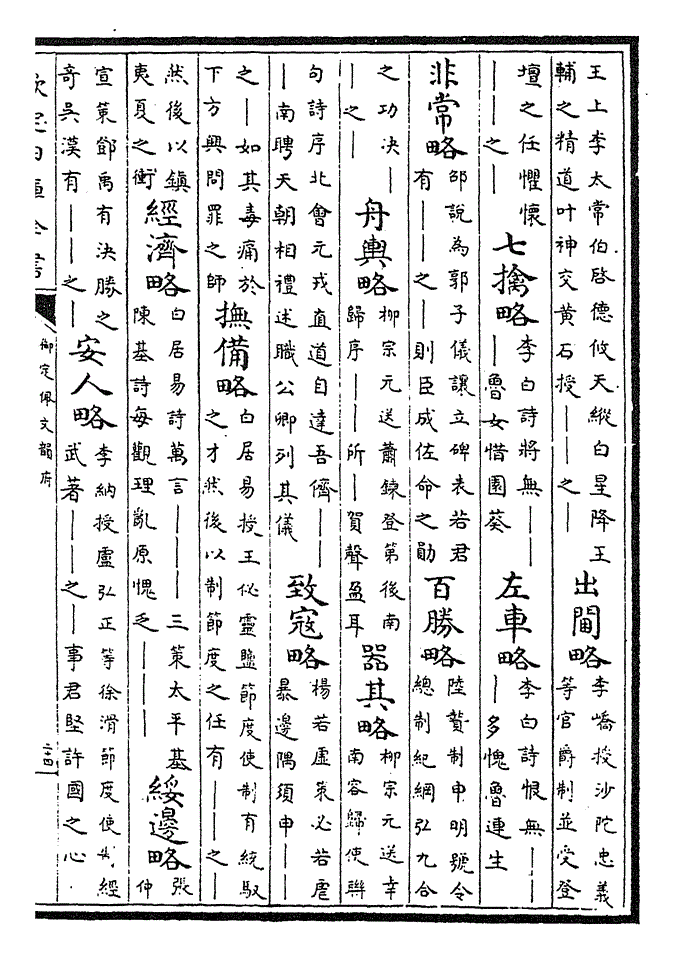 王上李太常伯啓德攸天縱白星降王
輔之精道叶神交黄石授——之—
出閫略
李嶠授沙陀忠義
等官爵制並受登
壇之任懼懷
——之—
七擒略
李白詩將無——
—魯女惜園葵
左車略
李白詩恨無——
—多愧魯連生
非常略
邵說為郭子儀讓立碑表若君
有——之—則臣成佐命之勛
百勝略
陸贄制申明號令
總制紀綱弘九合
之功决—
—之—
舟輿略
柳宗元送蕭鍊登第後南
歸序——所—賀聲盈耳
器其略
柳宗元送幸
南容歸使聯
句詩序北會元戎直道自達吾儕——
—南聘天朝相禮述職公卿列其儀
致寇略
楊若虛策必若虐
暴邊隅須申——
之—如其毒痛於
下方興問罪之師
撫備略
白居易授王佖靈鹽節度使制有統馭
之才然後以制節度之任有——之—
然後以鎮
夷夏之衝
經濟略
白居易詩萬言———三策太平基
陳基詩每觀理亂原愧乏———
綏邊略
張
仲
宣策鄧禹有决勝之
奇吳漢有——之—
安人略
李納授盧弘正等徐滑節度使制經
武著——之—事君堅許國之心
欽定四庫全書
御定佩文韻府